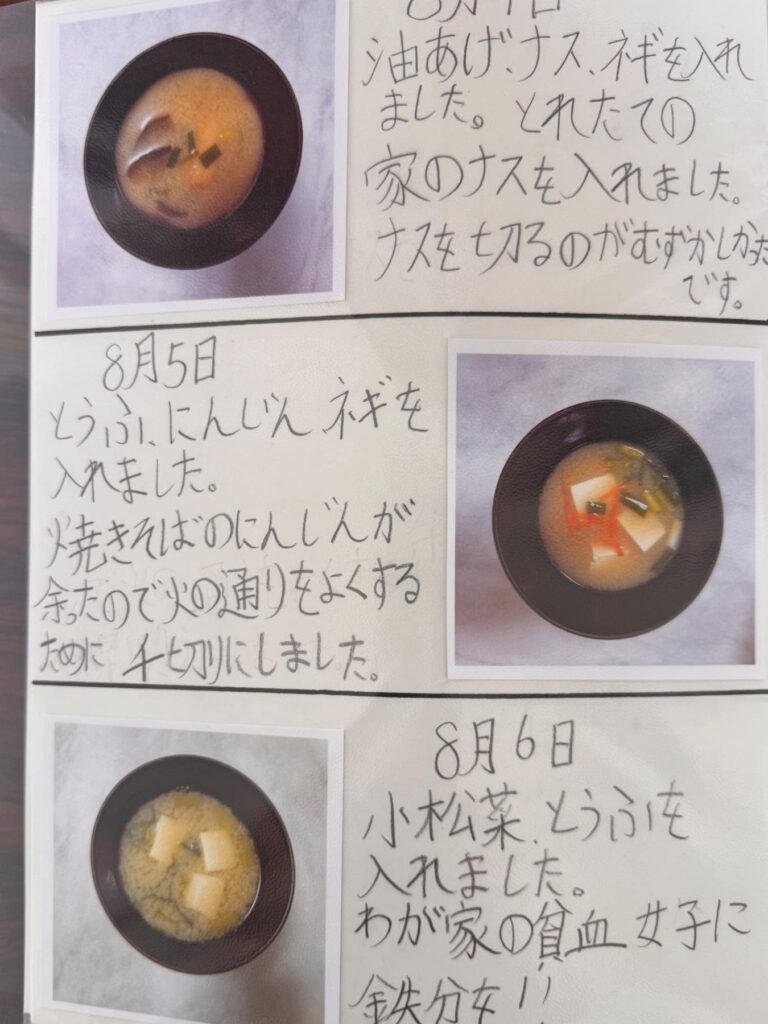 油あげ、ナス、ネギを入れ
ました。とれたての
家のナスを入れました。
ナスを切るのがむずかしかった
です。
8月5日
とうふ、にんじん、ネギを
入れました。
焼きそばのにんじんが
余ったので火の通りをよくする
ために 千切りにしました。
8月6日
小松菜、とうふを
入れました。
わが家の貧血女子に
鉄分を!!